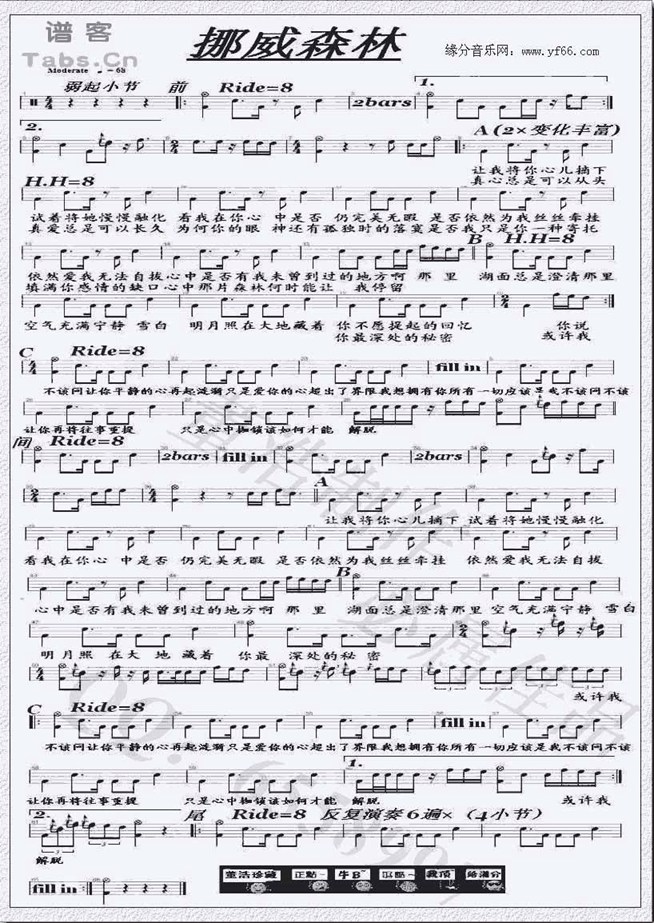 谱客
Tabs.Cn
挪威森林
缘分音乐网：www.yf66.com
Moderate ♩=68
弱起小节 前 Ride=8
2bars
1.
2.
A (2×变化丰富)
让我将你心儿摘下
真心总是可以从头
H.H=8
试着将她慢慢融化 看我在你心 中是否 仍完美无暇 是否依然为我丝丝牵挂
真爱总是可以长久 为何你的眼 神还有孤独时的落寞是否我只是你一种寄托
B H.H=8
依然爱我无法自拔心中是否有我未曾到过的地方啊 那 里 湖面总是澄清那里
填满你感情的缺口心中那片森林何时能让 我停留
空气充满宁静 雪白 明月照在大地藏着 你不愿提起的回忆 你说
你最深处的秘密 或许我
C Ride=8
fill in
不该问让你平静的心再起涟漪只是爱你的心超出了界限我想拥有你所有一切应该是我不该问不该
让你再将往事重提 只是心中枷锁该如何才能 解脱
间 Ride=8
2bars fill in 2bars
A
让我将你心儿摘下 试着将她慢慢融化
看我在你心 中是否 仍完美无暇 是否依然为我丝丝牵挂 依然爱我无法自拔
B
心中是否有我未曾到过的地方啊 那 里 湖面总是澄清那里空气充满宁静 雪白
明月照 在大 地 藏着 你最 深处的秘密
或许我
C Ride=8
fill in
不该问让你平静的心再起涟漪只是爱你的心超出了界限我想拥有你所有一切应该是我不该问不该
1.
让你再将往事重提 只是心中枷锁该如何才能 解脱 或许我
2. 尾 Ride=8 反复演奏6遍×（4小节）
解脱
fill in